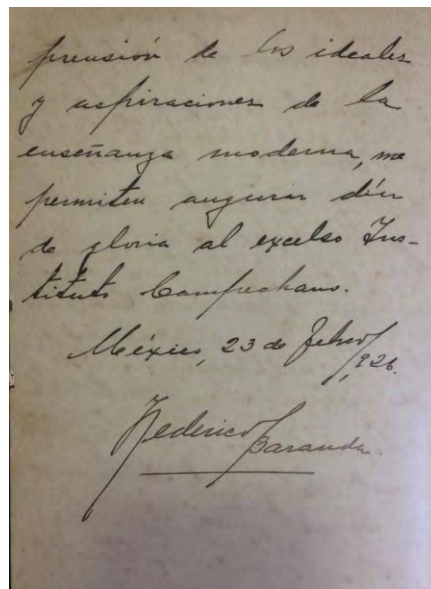 prensión de los ideales
y aspiraciones de la
enseñanza moderna, me
permiten augurar días
de gloria al excelso Ins-
tituto Campechano.
México, 23 de Febro/926.
Federico Baranda.